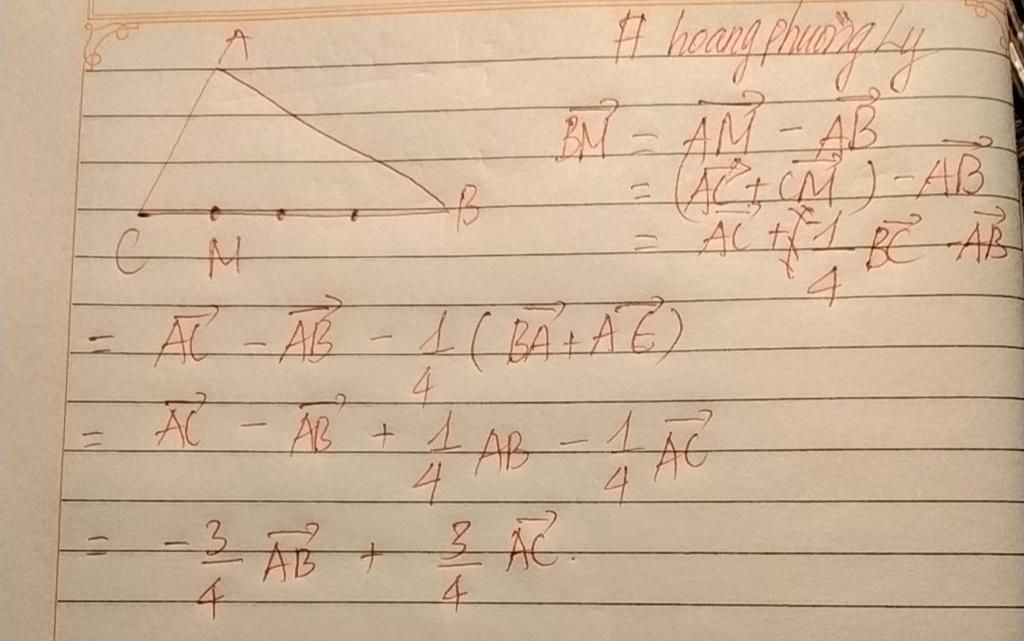 A
# hoangphươngLy
C M B
$\overrightarrow{BM} = \overrightarrow{AM} - \overrightarrow{AB}$
$= (\overrightarrow{AC} + \overrightarrow{CM}) - \overrightarrow{AB}$
$= \overrightarrow{AC} + \frac{-1}{4} \overrightarrow{BC} - \overrightarrow{AB}$
$= \overrightarrow{AC} - \overrightarrow{AB} - \frac{1}{4} (\overrightarrow{BA} + \overrightarrow{AC})$
$= \overrightarrow{AC} - \overrightarrow{AB} + \frac{1}{4} AB - \frac{1}{4} \overrightarrow{AC}$
$= -\frac{3}{4} \overrightarrow{AB} + \frac{3}{4} \overrightarrow{AC}.$